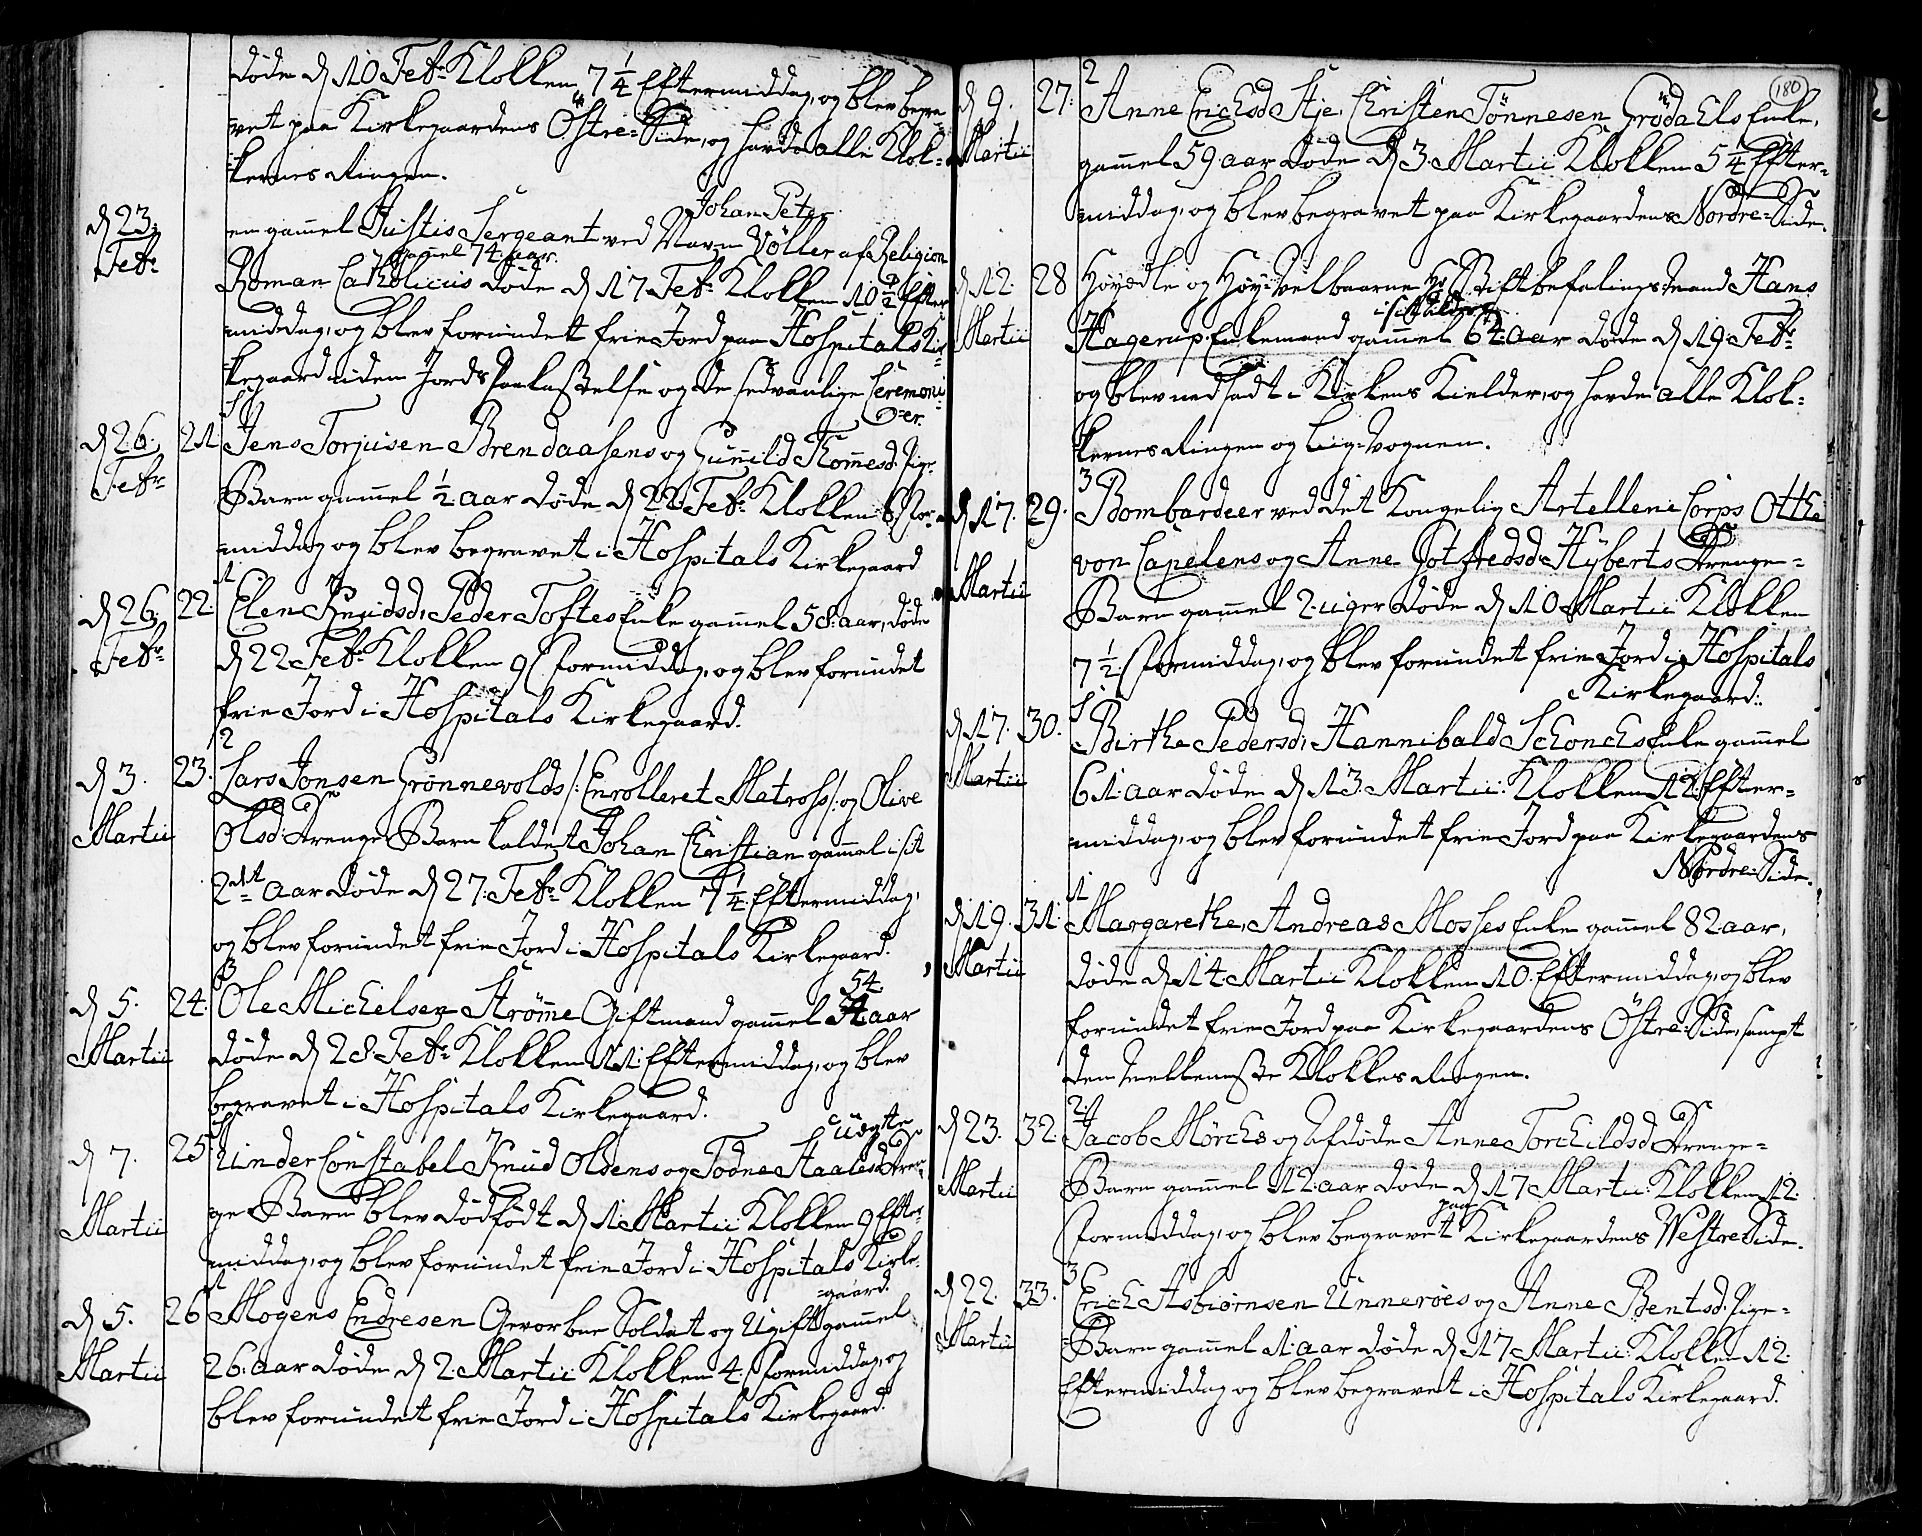 døde d 10 Febr Klokken 7 1/4 Eftermiddag, og blev begra-
vet paa Kirkegaardens Östre-Side, og havde alle Klok-
kernes Ringen.
d 23: Febr
en gammel Justis Sergeant ved Navn Johan Peter Völler af Religion
Roman Catholicus gammel 74 aar. døde d 17 Febr Klokken 10 1/2 Efter
middag, og blev forundet frie Jord paa Hospitals Kir-
kegaard uden Jords Paakastelse og de sedvanlige Ceremoni-
er.
d 26. Febr 21
Jens Torjusen Brendaasens og Gunild Tommesd. Pige-
Barn gammel 1/2 aar døde d 22 Febr Klokken 8 For-
middag og blev begravet i Hospitals Kirkegaard
1
d 26. Febr 22.
Elen Knudsd, Peder Toftes Enke gammel 58 aar, døde
d 22 Febr Klokken 9 Formiddag, og blev forundet
frie Jord i Hospitals Kirkegaard.
2
d 3. Martii 23.
Lars Jonsen Grønnevolds /: Enrolleret Matross :/ og Olive
Olsd: Drenge Barn kaldet Johan Christian gammel i sit
2det aar døde d 27. Febr Klokken 7 1/4 Eftermiddag,
og blev forundet frie Jord i Hospitals Kirkegaard.
3
d 5. Martii 24.
Ole Michelsen Strømme Giftmand gammel 54 aar
døde d 28 Febr Klokken 11 Eftermiddag, og blev
begravet i Hospitals Kirkegaard.
d 7. Martii 25
Under Constabel Knud Olsens og Todne Staalesd ægte Dren-
ge Barn blev dødfødt d 1 Martii Klokken 9 Efter-
middag, og blev forundet frie Jord i Hospitals Kirke-
gaard.
1
d 5. Martii 26
Mogens Endresen Gevorben Soldat og Ugift gammel
26 aar døde d 2 Martii Klokken 4. Formiddag, og
blev forundet frie Jord i Hospitals Kirkegaard.
180
2
d 9. Martii 27.
Anne Erichsd Stje, Christen Tönnesen Gröda Els Enke,
gammel 59 aar døde d 3. Martii Klokken 5 1/4 Efter-
middag, og blev begravet paa Kirkegaardens Nordre-Side.
d 12. Martii 28
Høyædle og Høy-Velbaarne Hr Stiftbefalingsmand Hans
Hagerup Enkemand gammel i sit Alders 64 aar døde d 19 Febr
og blev nedsadt i Kirkens Kielder, og havde alle Klok-
kernes Ringen og Liig-Vognen.
3
d 17. Martii 29.
Bombardeer ved det Kongelig Artelleni Corps Otthe
von Capelens og Anne Gotfredsd Hyberts Drenge-
Barn gammel 2 uger døde d 10 Martii Klokken
7 1/2 Formiddag, og blev forundet frie Jord i Hospitals
Kirkegaard.
d 17. Martii 30.
Birthe Pedersd, Hannibald Schonchs Enke gammel
61 aar døde d 13. Martii Klokken 12 Efter-
middag, og blev forundet frie Jord paa Kirkegaardens
Nordre-Side.
1
d 19. Martii 31.
Margarethe, Andreas Mosses Enke gammel 82 aar,
døde d 14 Martii Klokken 10 Eftermiddag, og blev
forundet frie Jord paa Kirkegaardens Östre-Side, sampt
den mellemste Klokkes Ringen.
2
d 23. Martii 32
Jacob Mørchs og Afdøde Anne Torchildsd Drenge-
Barn gammel 12 aar døde d 17 Martii Klokken 12
Formiddag, og blev begravet paa Kirkegaardens Westre Side.
3
d 22. Martii 33.
Erich Asbiørnsen Unnerøes og Anne Bentsd. Pige-
Barn gammel 1 aar døde d 17 Martii Klokken 12
Eftermiddag og blev begravet i Hospitals Kirkegaard.